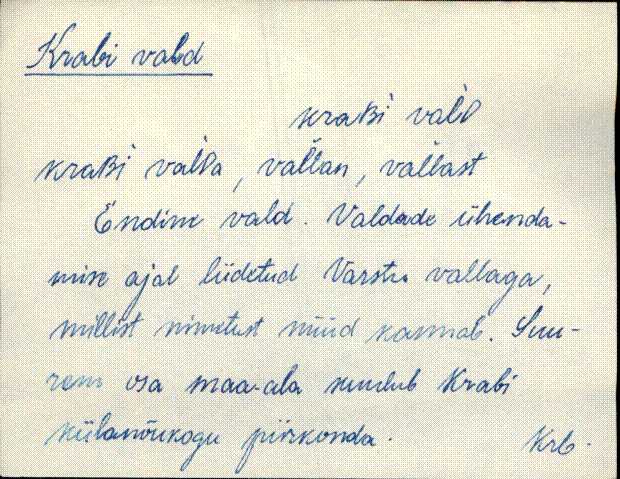 Krabi vald
kraʙi valᴅ
kraʙi valᴅa, vaĺlan, vaĺlast
Endine vald. Valdade ühenda-
mise ajal liidetud Varstu vallaga,
millist nimetust nüüd kannab. Suu-
rem osa maa-ala kuulub Krabi
külanõukogu piirkonda.
Krb.